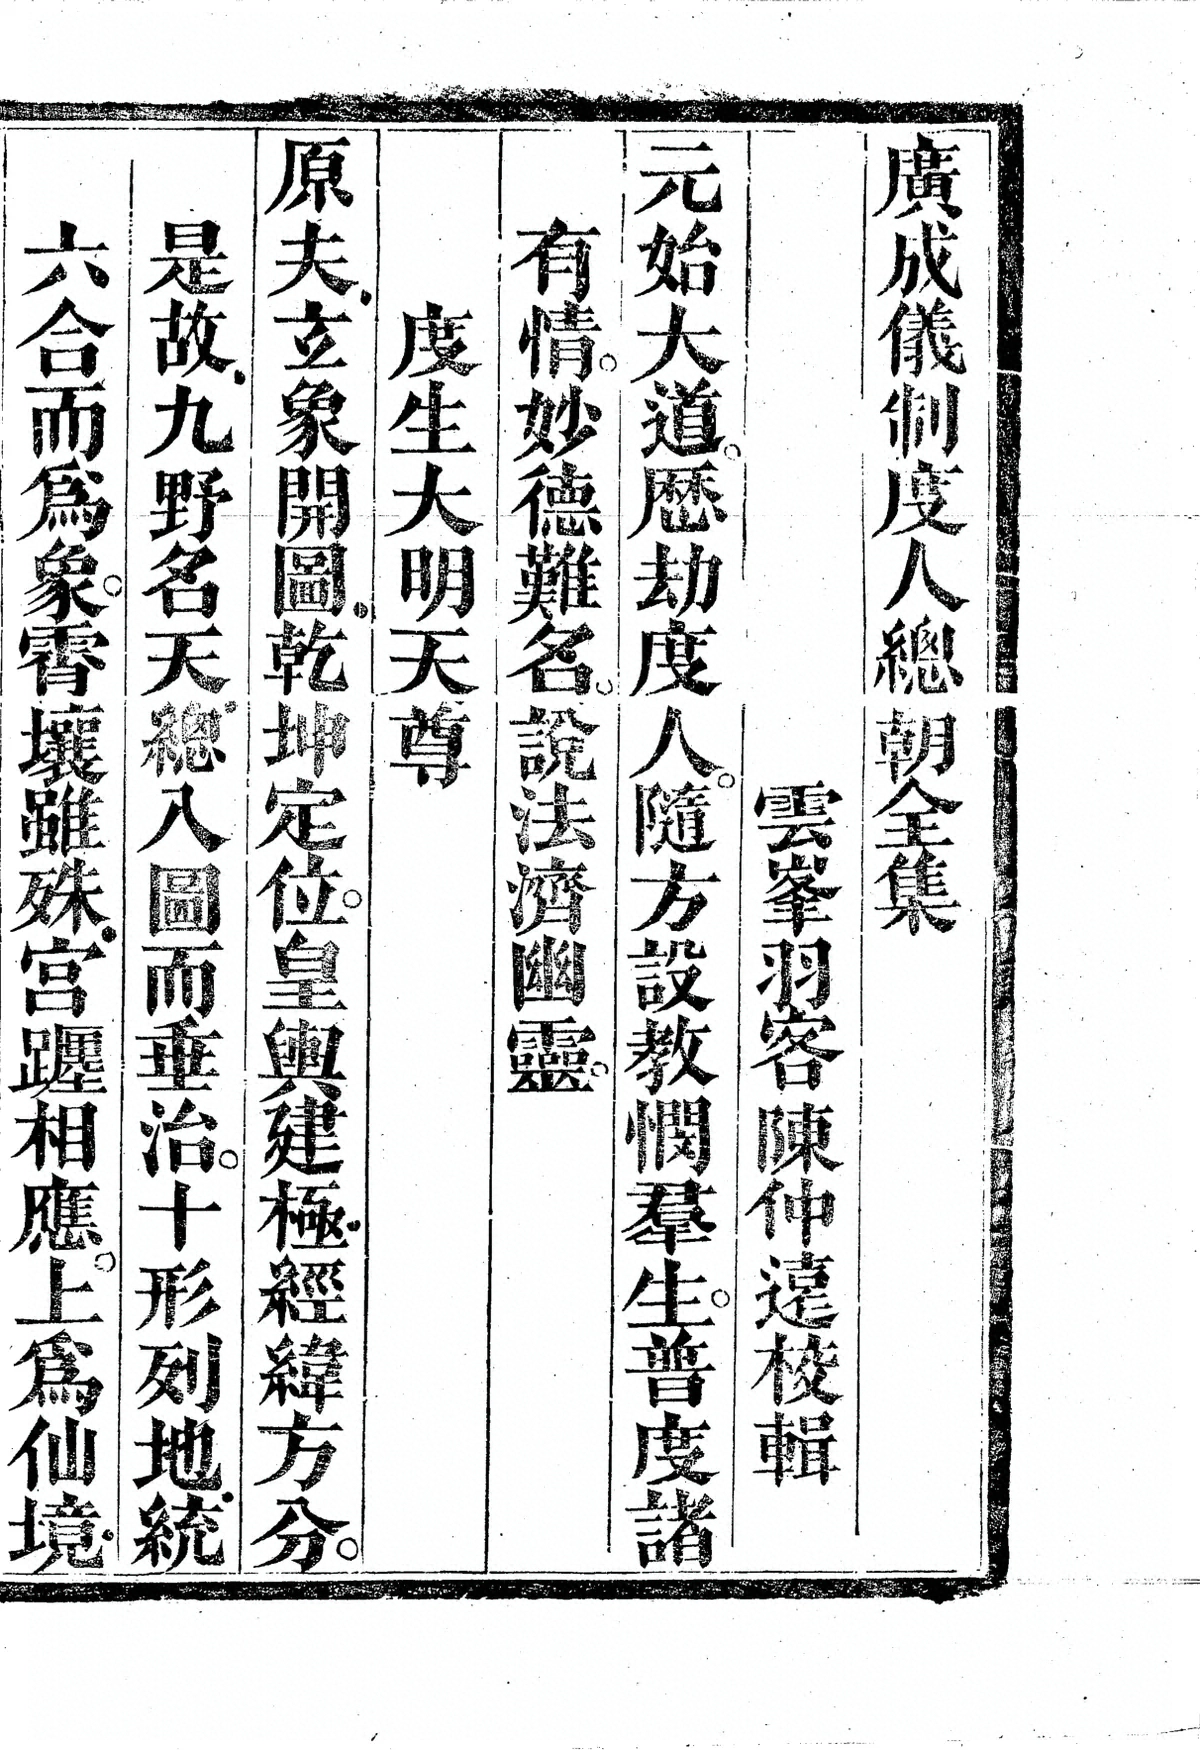 廣成儀制度人總朝全集
雲峯羽客陳仲遠校輯
元始大道。歷劫度人。隨方設教憫羣生。普度諸
有情。妙德難名。說法濟幽靈。
度生大明天尊
原夫、立象開圖、乾坤定位。皇輿建極、經緯方分。
是故、九野名天、總八圖而垂治。十形列地、統
六合而爲象。霄壤雖殊、宫躔相應。上爲仙境、